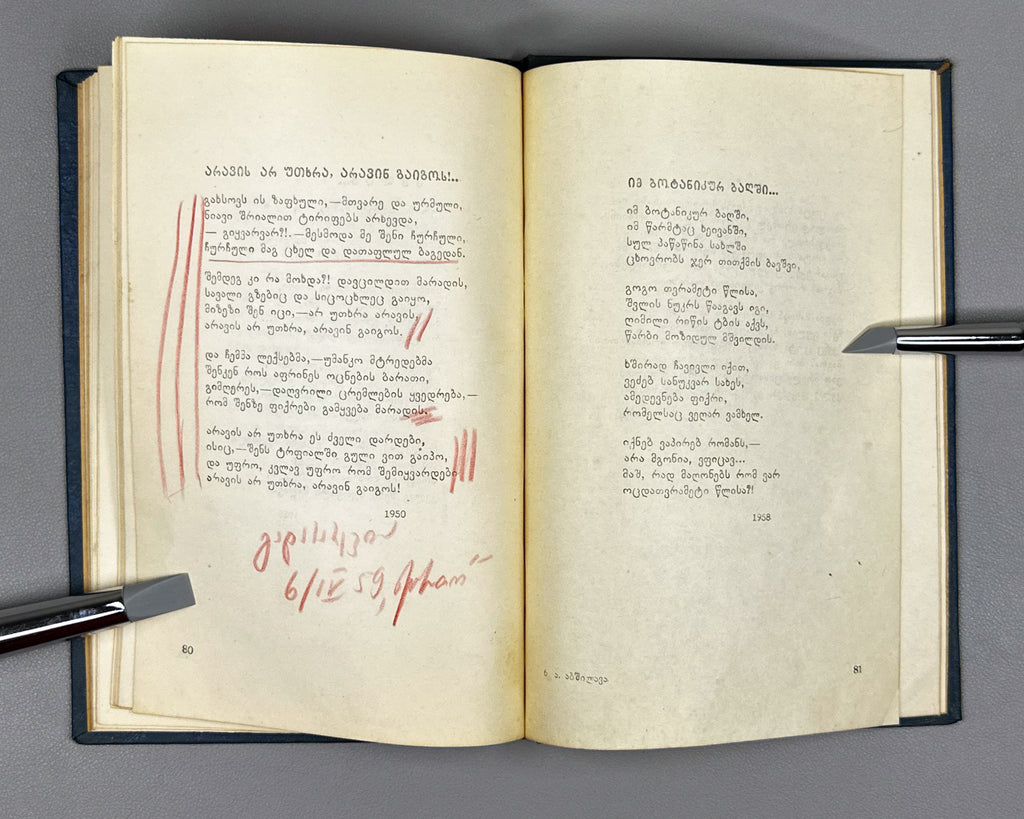 არავის არ უთხრა, არავინ გაიგოს!..
გახსოვს ის ზაფხული,—მთვარე და ურმული,
ნიავი შრიალით ტირიფებს არხევდა,
— გიყვარვარ?!.—მესმოდა მე შენი ჩურჩული,
ჩურჩული მაგ ცხელ და დათაფლულ ბაგედან.
შემდეგ კი რა მოხდა?! დავცილდით მარადის,
სავალი გზებიც და სიცოცხლეც გაიყო,
მიზეზი შენ იცი,—არ უთხრა არავის,
არავის არ უთხრა, არავინ გაიგოს.
და ჩემმა ლექსებმა,—უმანკო მტრედებმა
შენკენ როს აფრინეს ოცნების ბარათი,
გიმღერეს,—დაღვრილი ცრემლების ყვედრება,—
რომ შენზე ფიქრები გამყვება მარადის.
არავის არ უთხრა ეს ძველი დარდები,
ისიც,—შენს ტრფიალში გული ვით გაიპო,
და უფრო, კვლავ უფრო რომ შემიყვარდები
არავის არ უთხრა, არავინ გაიგოს!
1950
80
იმ ბოტანიკურ ბაღში...
იმ ბოტანიკურ ბაღში,
იმ წარმტაც ხეივანში,
სულ პაწაწინა სახლში
ცხოვრობს ჯერ თითქმის ბავშვი,
გოგო თვრამეტი წლისა,
შვლის ნუკრს წააგავს იგი,
ღიმილი რიწის ტბის აქვს,
წარბი მოზიდულ მშვილდის.
ხშირად ჩავივლი იქით,
ვეძებ სანუკვარ სახეს,
ამედევნება ფიქრი,
რომელსაც ვეღარ ვამხელ.
იქნებ ვაპირებ რომანს,—
არა მგონია, ვფიცავ...
მაშ, რად მაღონებს რომ ვარ
ოცდათვრამეტი წლისა?!
1958
ხ. ა. აბშილავა
81